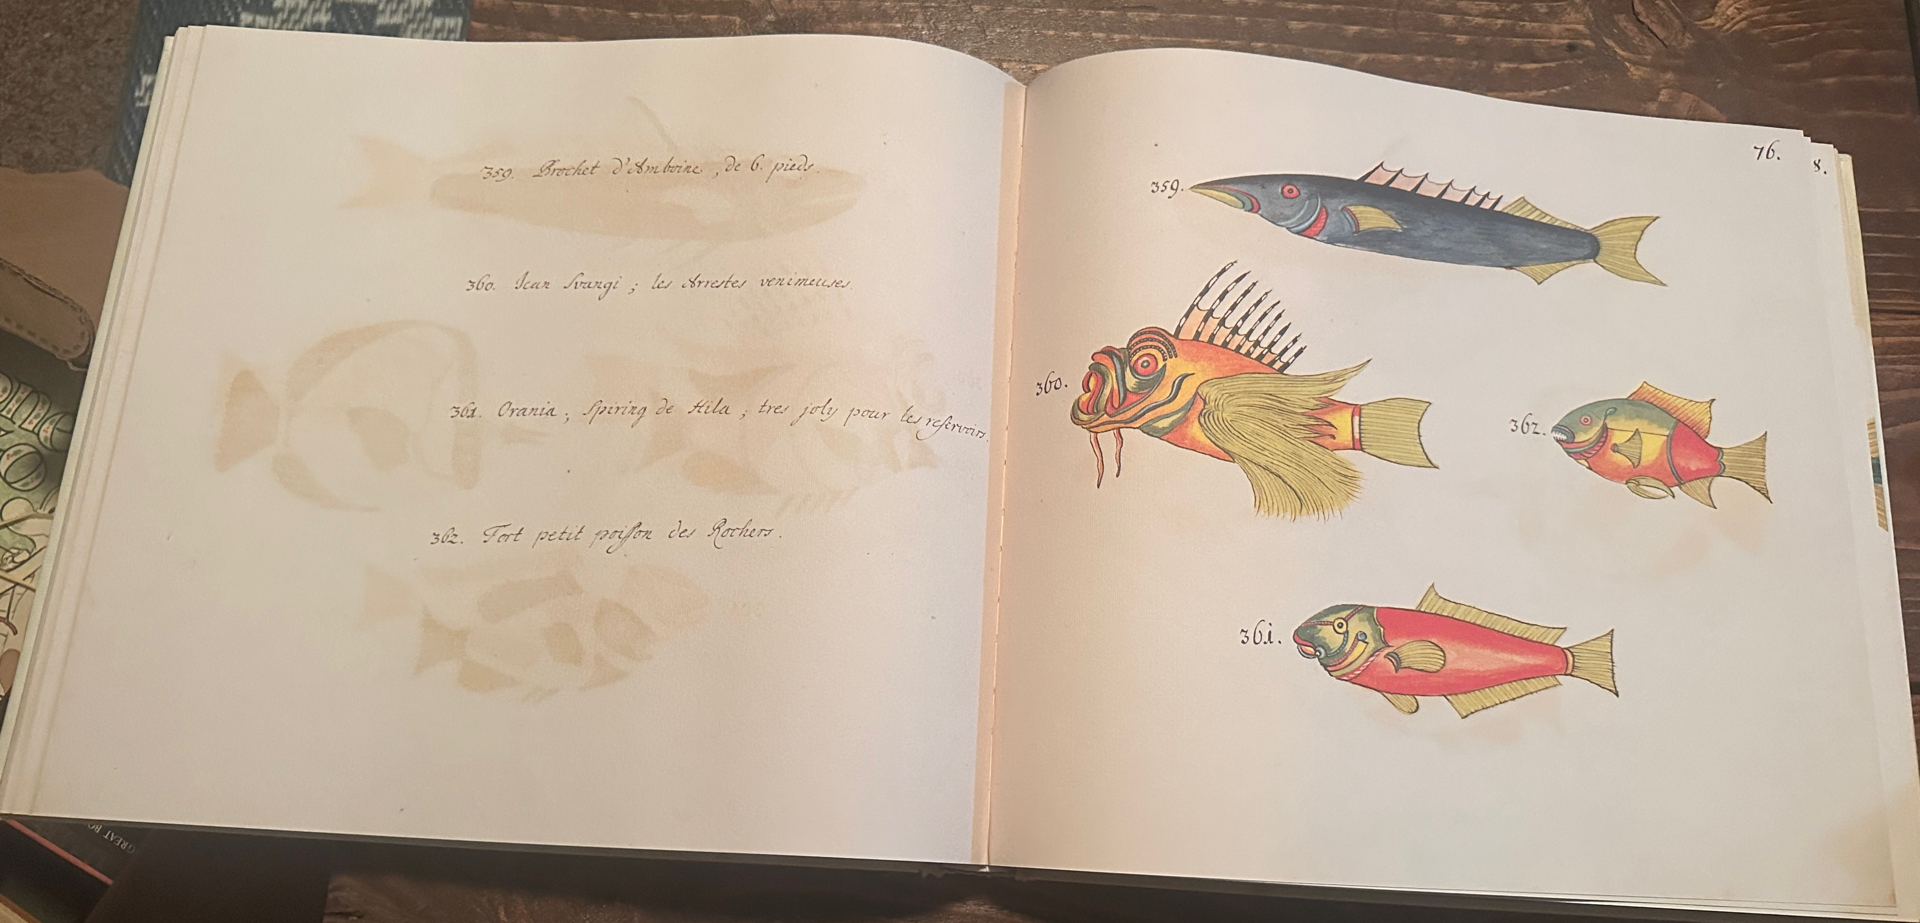 359. Brochet d'Amboine, de 6. pieds.
360. Ican Svangi; les Arrestes venimeuses.
361. Orania; Spiring de Hila; tres joly pour les reservoirs.
362. Fort petit poisson des Rochers.
76.
8.
359.
360.
362.
361.
GREAT BO